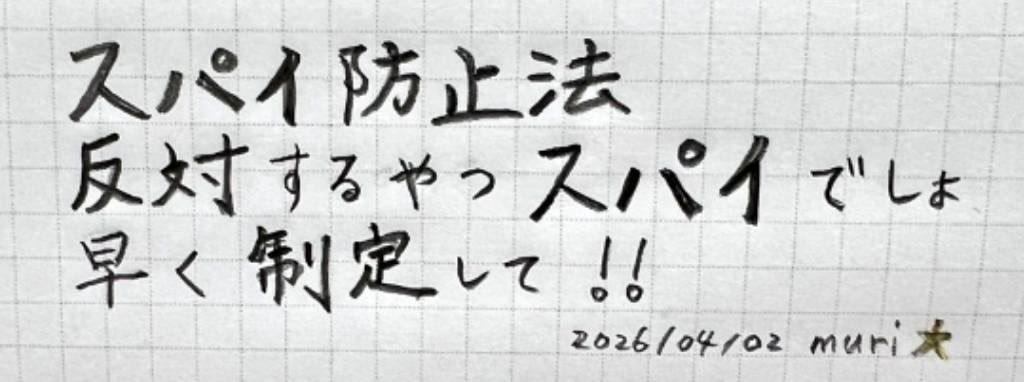 スパイ防止法
反対するやつスパイでしょ
早く制定して!!
2026/04/02 muri★